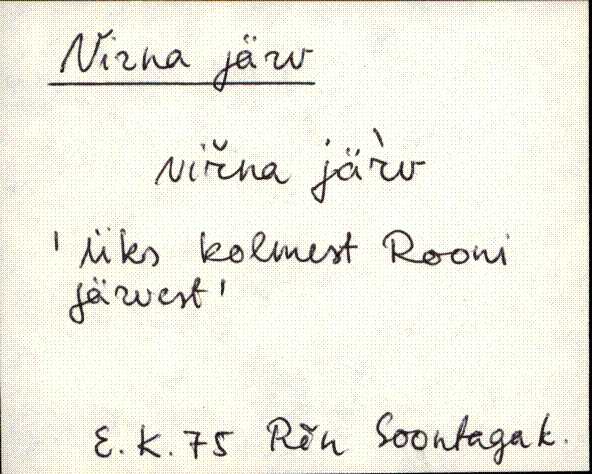 Nirna järv
nir̆na jär̀v
' üks kolmest Rooni
järvest '
E. K. 75 Rĕn Soontaga k.